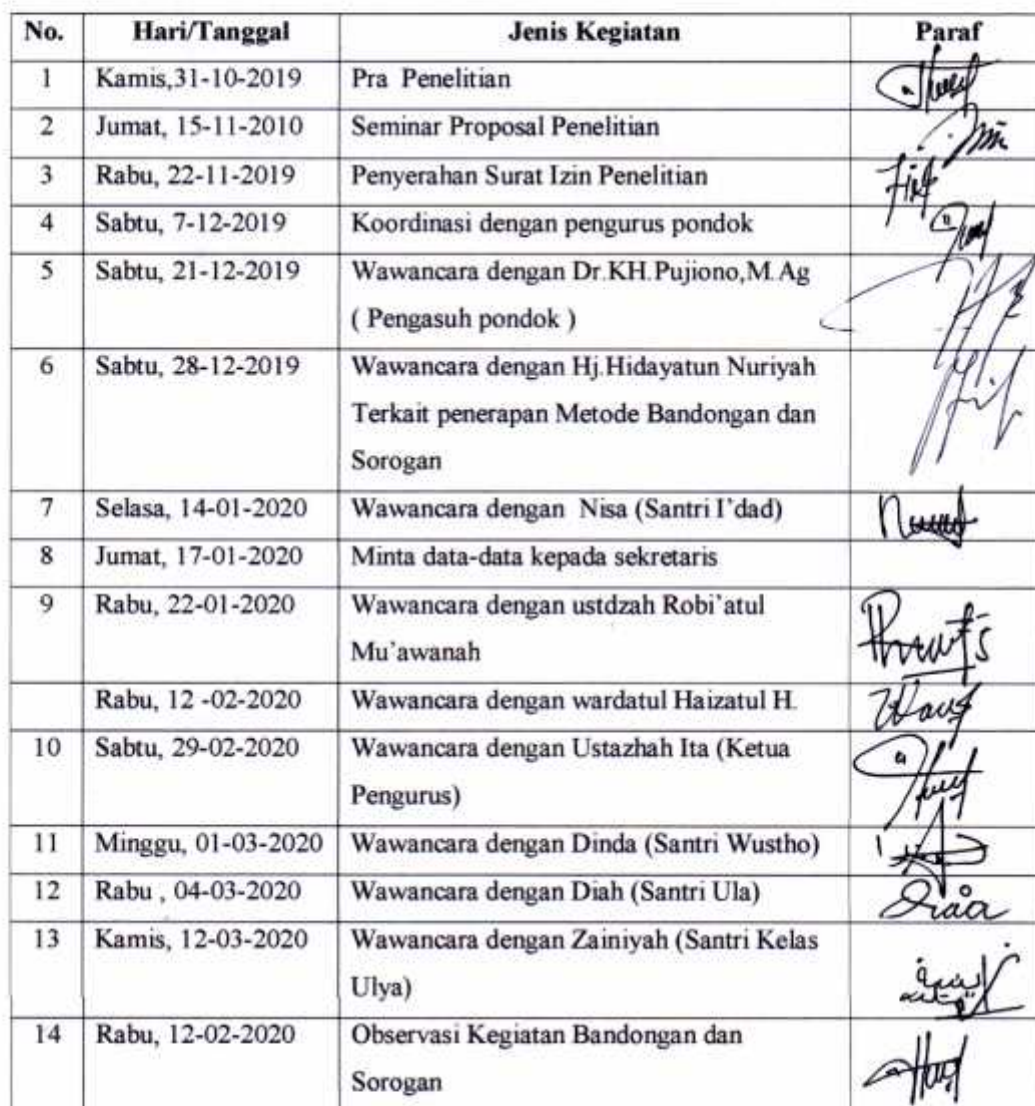 No. Hari/Tanggal Jenis Kegiatan Paraf
1 Kamis,31-10-2019 Pra Penelitian
2 Jumat, 15-11-2010 Seminar Proposal Penelitian
3 Rabu, 22-11-2019 Penyerahan Surat Izin Penelitian
4 Sabtu, 7-12-2019 Koordinasi dengan pengurus pondok
5 Sabtu, 21-12-2019 Wawancara dengan Dr.KH.Pujiono,M.Ag
( Pengasuh pondok )
6 Sabtu, 28-12-2019 Wawancara dengan Hj.Hidayatun Nuriyah
Terkait penerapan Metode Bandongan dan
Sorogan
7 Selasa, 14-01-2020 Wawancara dengan Nisa (Santri I'dad)
8 Jumat, 17-01-2020 Minta data-data kepada sekretaris
9 Rabu, 22-01-2020 Wawancara dengan ustdzah Robi'atul
Mu'awanah
Rabu, 12 -02-2020 Wawancara dengan wardatul Haizatul H.
10 Sabtu, 29-02-2020 Wawancara dengan Ustazhah Ita (Ketua
Pengurus)
11 Minggu, 01-03-2020 Wawancara dengan Dinda (Santri Wustho)
12 Rabu , 04-03-2020 Wawancara dengan Diah (Santri Ula)
13 Kamis, 12-03-2020 Wawancara dengan Zainiyah (Santri Kelas
Ulya)
14 Rabu, 12-02-2020 Observasi Kegiatan Bandongan dan
Sorogan